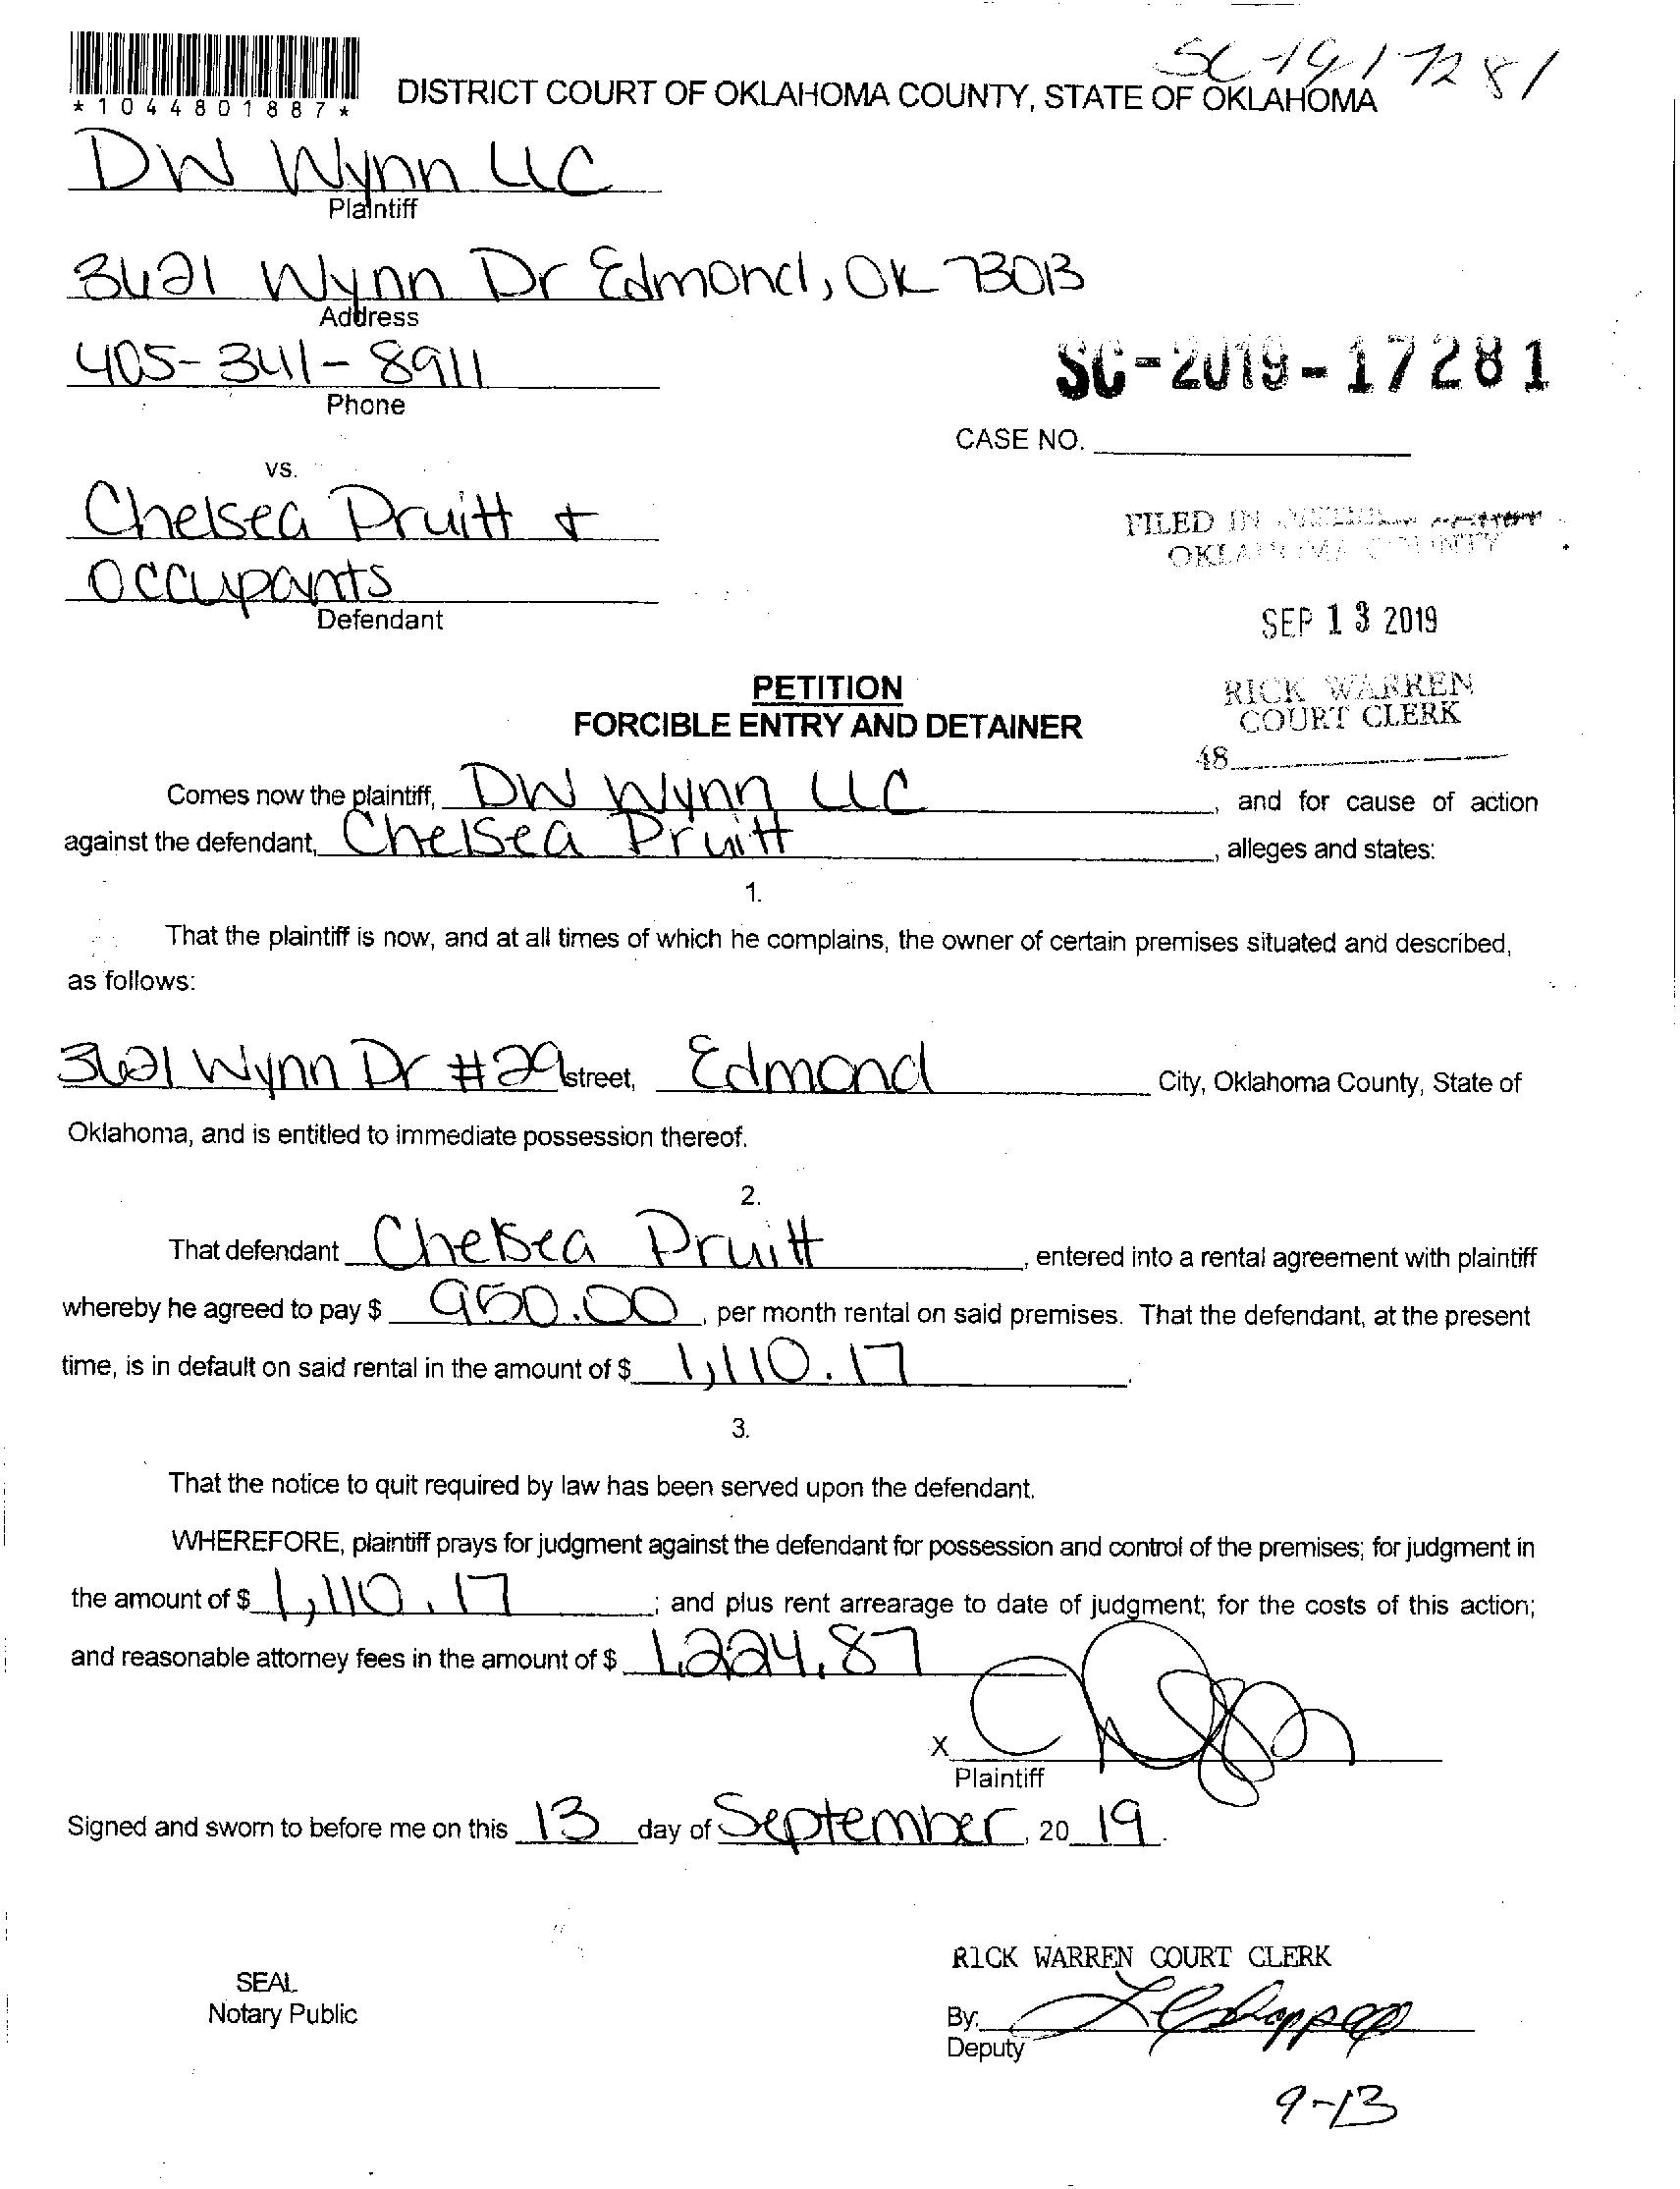 SC-19-17281
*1044801887*
DISTRICT COURT OF OKLAHOMA COUNTY, STATE OF OKLAHOMA
DW Wynn LLC
Plaintiff
3621 Wynn Dr Edmond, OK 73013
Address
405-341-8911
Phone
SC-2019-17281
CASE NO.
vs.
Chelsea Pruitt +
Occupants
Defendant
FILED IN
OKLAHOMA COUNTY
SEP 13 2019
RICK WARREN
COURT CLERK
48
PETITION
FORCIBLE ENTRY AND DETAINER
Comes now the plaintiff, DW Wynn LLC, and for cause of action
against the defendant, Chelsea Pruitt, alleges and states:
1.
That the plaintiff is now, and at all times of which he complains, the owner of certain premises situated and described,
as follows:
3621 Wynn Dr #29 street, Edmond City, Oklahoma County, State of
Oklahoma, and is entitled to immediate possession thereof.
2.
That defendant Chelsea Pruitt, entered into a rental agreement with plaintiff
whereby he agreed to pay $ 950.00, per month rental on said premises. That the defendant, at the present
time, is in default on said rental in the amount of $ 1,110.17.
3.
That the notice to quit required by law has been served upon the defendant.
WHEREFORE, plaintiff prays for judgment against the defendant for possession and control of the premises; for judgment in
the amount of $ 1,110.17; and plus rent arrearage to date of judgment; for the costs of this action;
and reasonable attorney fees in the amount of $ 1,224.87
X
Plaintiff
Signed and sworn to before me on this 13 day of September, 20 19.
RICK WARREN COURT CLERK
SEAL
Notary Public
By:
Deputy
9-13